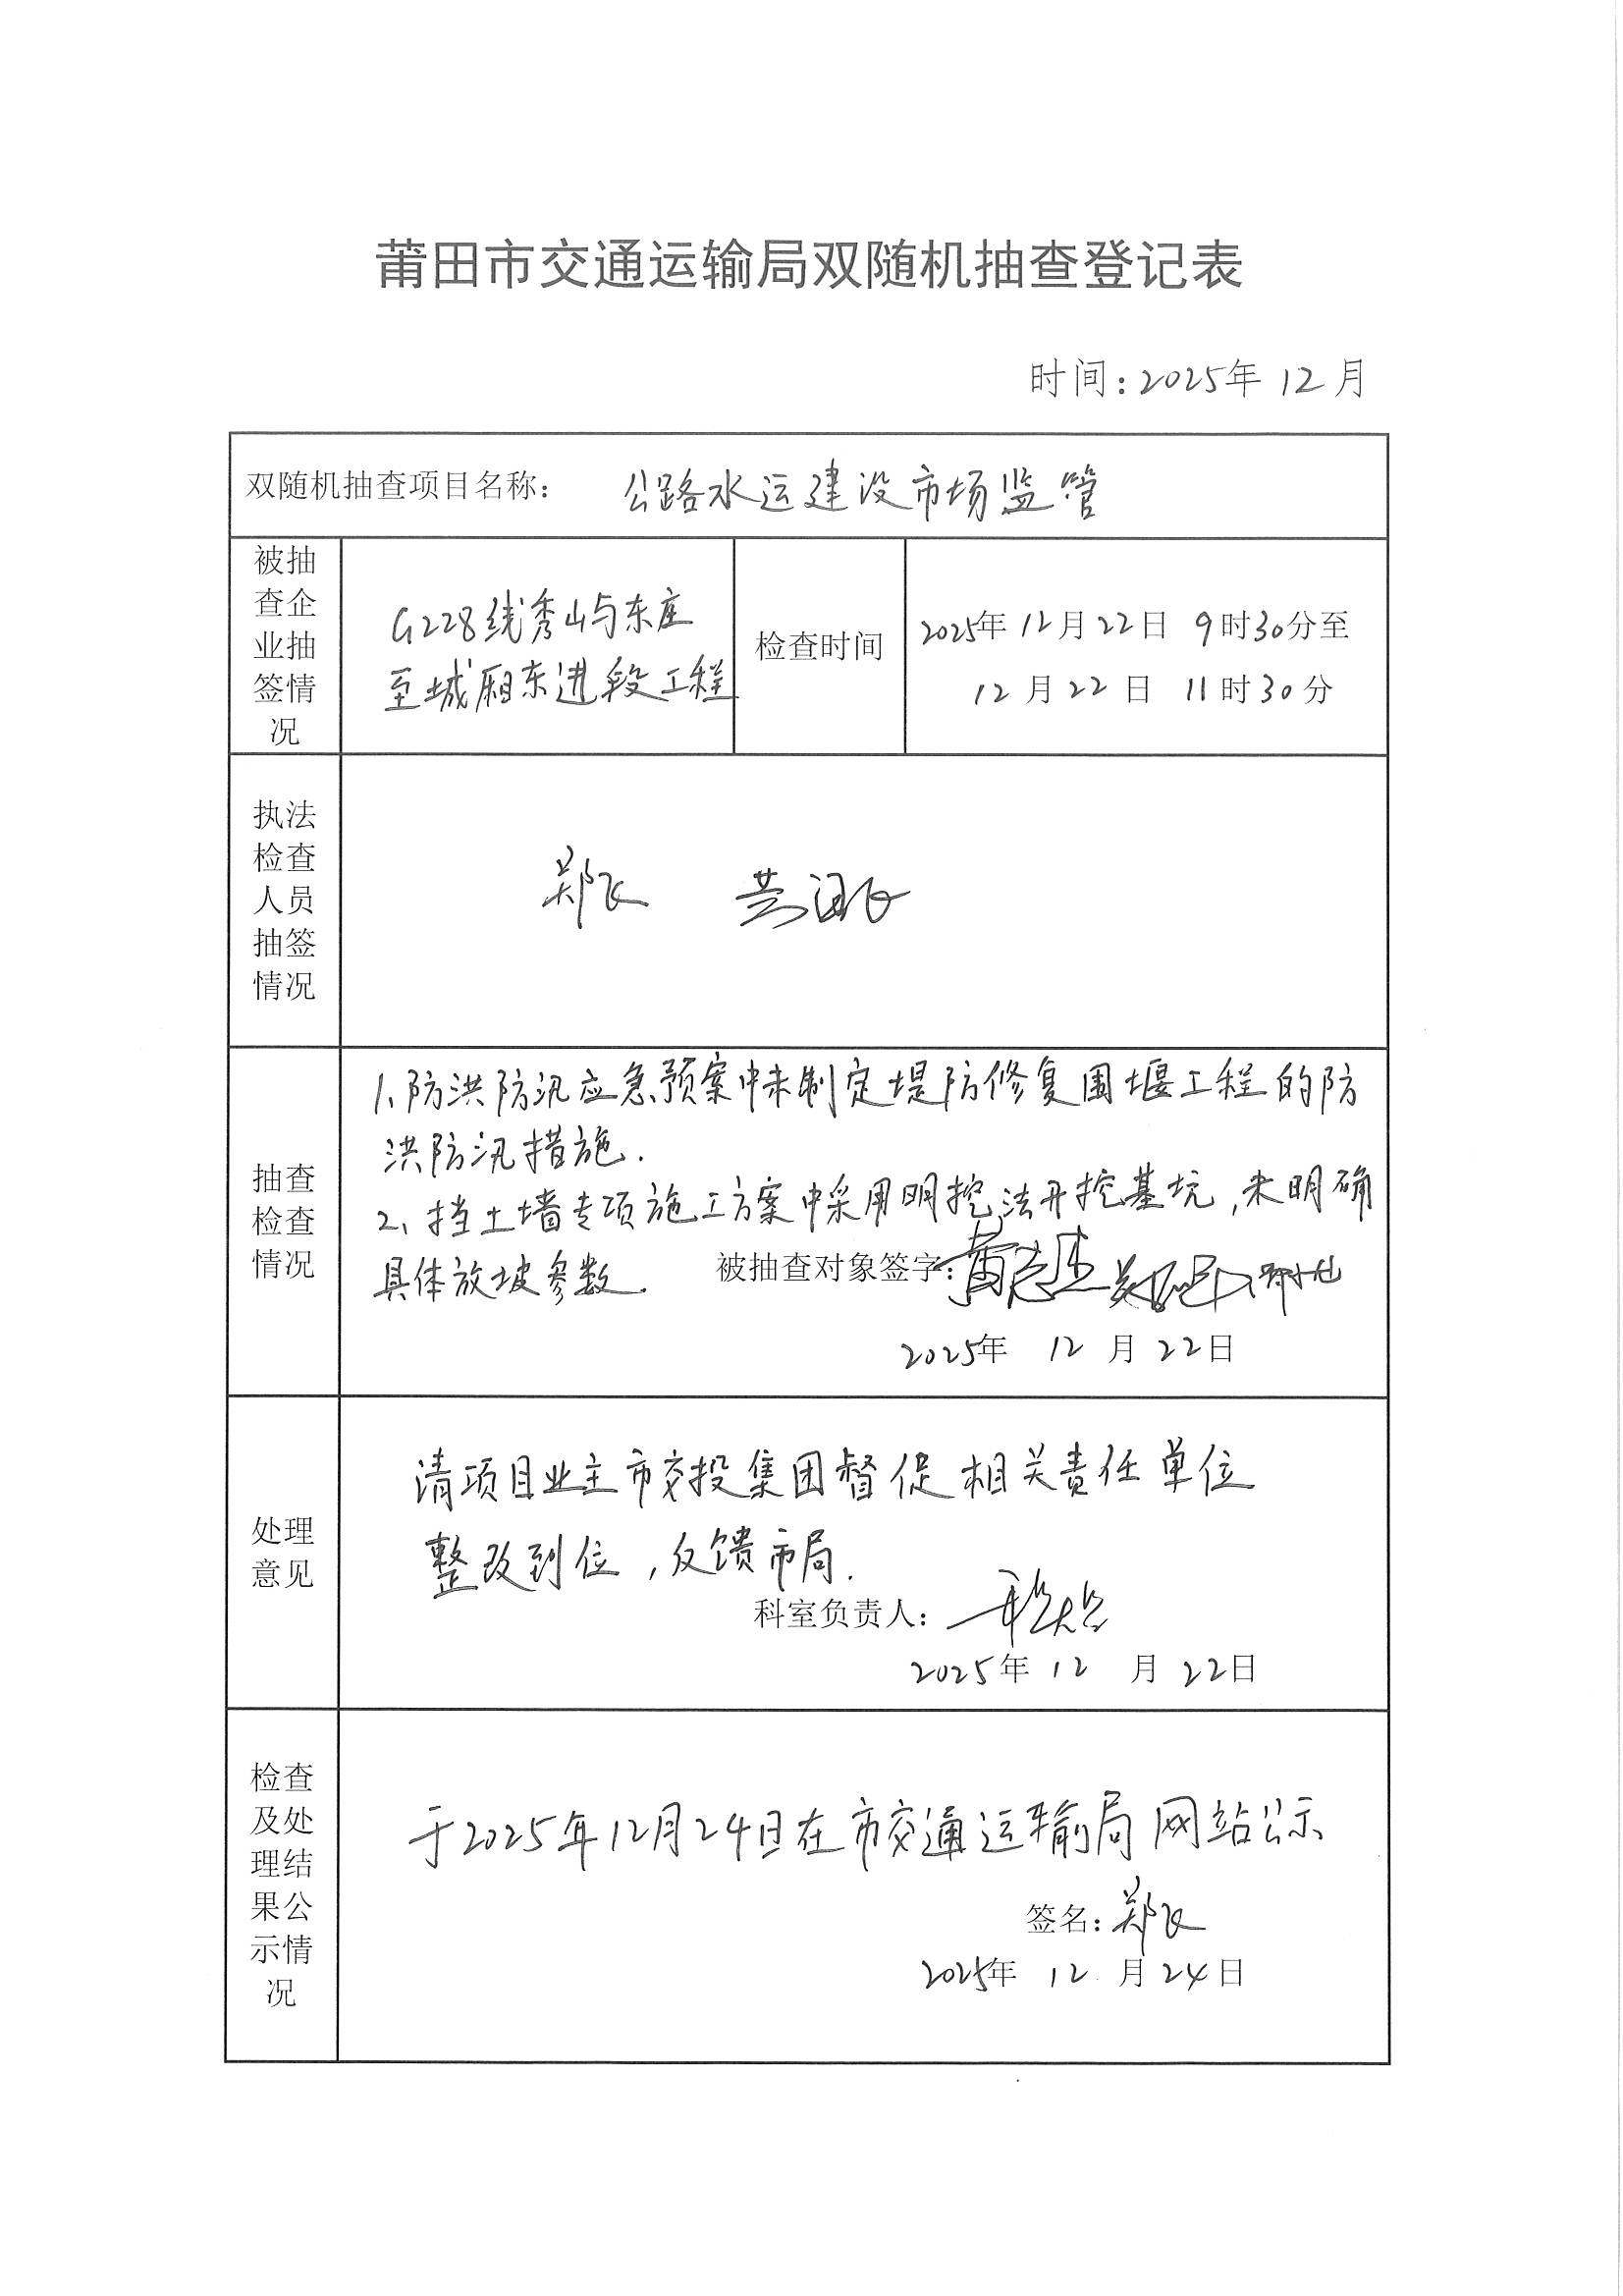 莆田市交通运输局双随机抽查登记表
时间:2025年12月
双随机抽查项目名称: 公路水运建设市场监管
被抽
查企
业抽
签情
况
G228线秀山与东庄
至城厢东进段工程
检查时间
2025年12月22日 9时30分至
12月22日 11时30分
执法
检查
人员
抽签
情况
郑飞
抽查
检查
情况
1、防洪防汛应急预案中未制定堤防修复围堰工程的防
洪防汛措施.
2、挡土墙专项施工方案中采用明挖法开挖基坑,未明确
具体放坡参数.
被抽查对象签字:
2025年 12 月 22日
处理
意见
请项目业主市交投集团督促相关责任单位
整改到位,反馈市局.
科室负责人:
2025年 12 月 22日
检查
及处
理结
果公
示情
况
于2025年12月24日在市交通运输局网站公示
签名:郑飞
2025年 12 月 24日